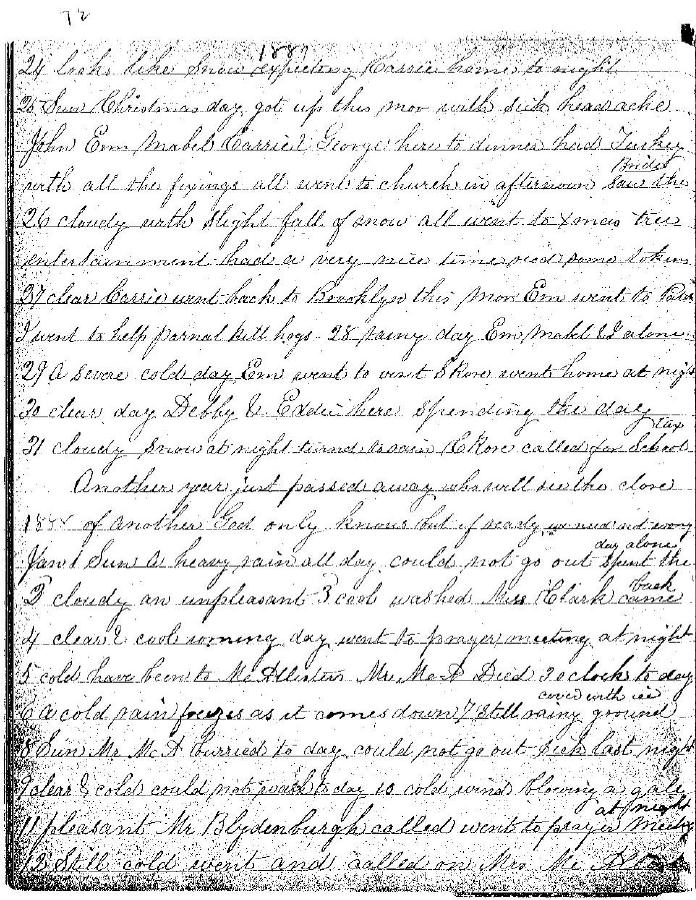 72
1887
24 looks like Snow expecting Carrie home to night
25 Sun Christmas day got up this mor with sick headache
John Em Mabel Carrie & George here to dinner had Turkey
with all the fixings all went to church in afternoon saw the Bride
26 cloudy with slight fall of snow all went to Xmas tree
entertainment had a very nice time recd some tokens
27 clear Carrie went back to Brooklyn this Mor Em went to
I went to help Parnal kill hogs 28 rainy day Em Mabel & I alone
29 A severe cold day Em went to went home at night
30 clear day Debby & Eddie here spending the day
31 cloudy snow at night turned to rain called for School tax
Another year just passed away who will see the close
1888 of another God only knows but if ready we need not worry
Jan 1 Sun A heavy rain all day could not go out spent the day alone
2 cloudy an unpleasant 3 cool washed Miss Clark came back
4 clear & cool day went to prayer meeting at night
5 cold have been to Mc Allisters Mr Mc A Died 3 oclock to day
6 A cold rain freezes as it comes down 7 Still rainy ground coverd with ice
8 Sun Mr Mc A burried to day could not go out Sick last night
9 clear & cold could not wash to day 10 cold wind blowing a gale
11 pleasant Mr Blydenburgh called went to prayer Meeting at night
12 Still cold went and called on Mrs Mc